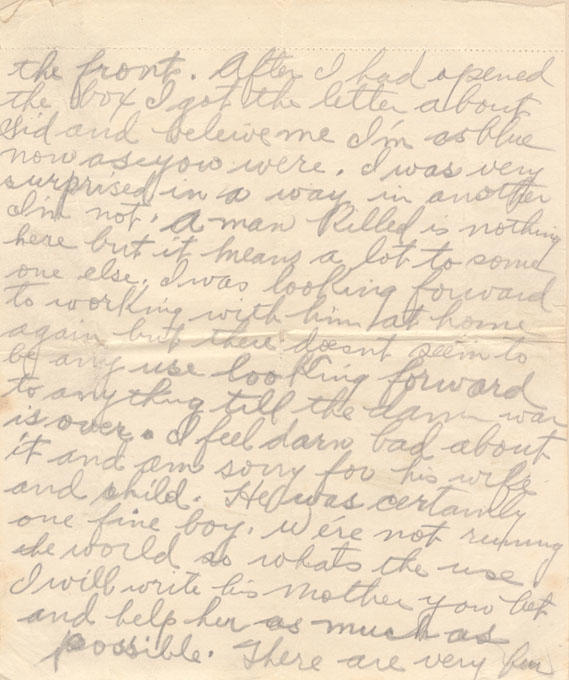 the front. After I had opened
the box I got the letter about
Sid and beleive me I'm as blue
now as you were. I was very
surprised in a way in another
I'm not. A man killed is nothing
here but it means a lot to some
one else. I was looking forward
to working with him at home
again but there doesnt seem to
be any use looking forward
to anything till the damn war
is over. I feel darn bad about
it and am sorry for his wife
and child. He was certainly
one fine boy. Were not running
the world so whats the use.
I will write his Mother you bet
and help her as much as
possible. There are very few